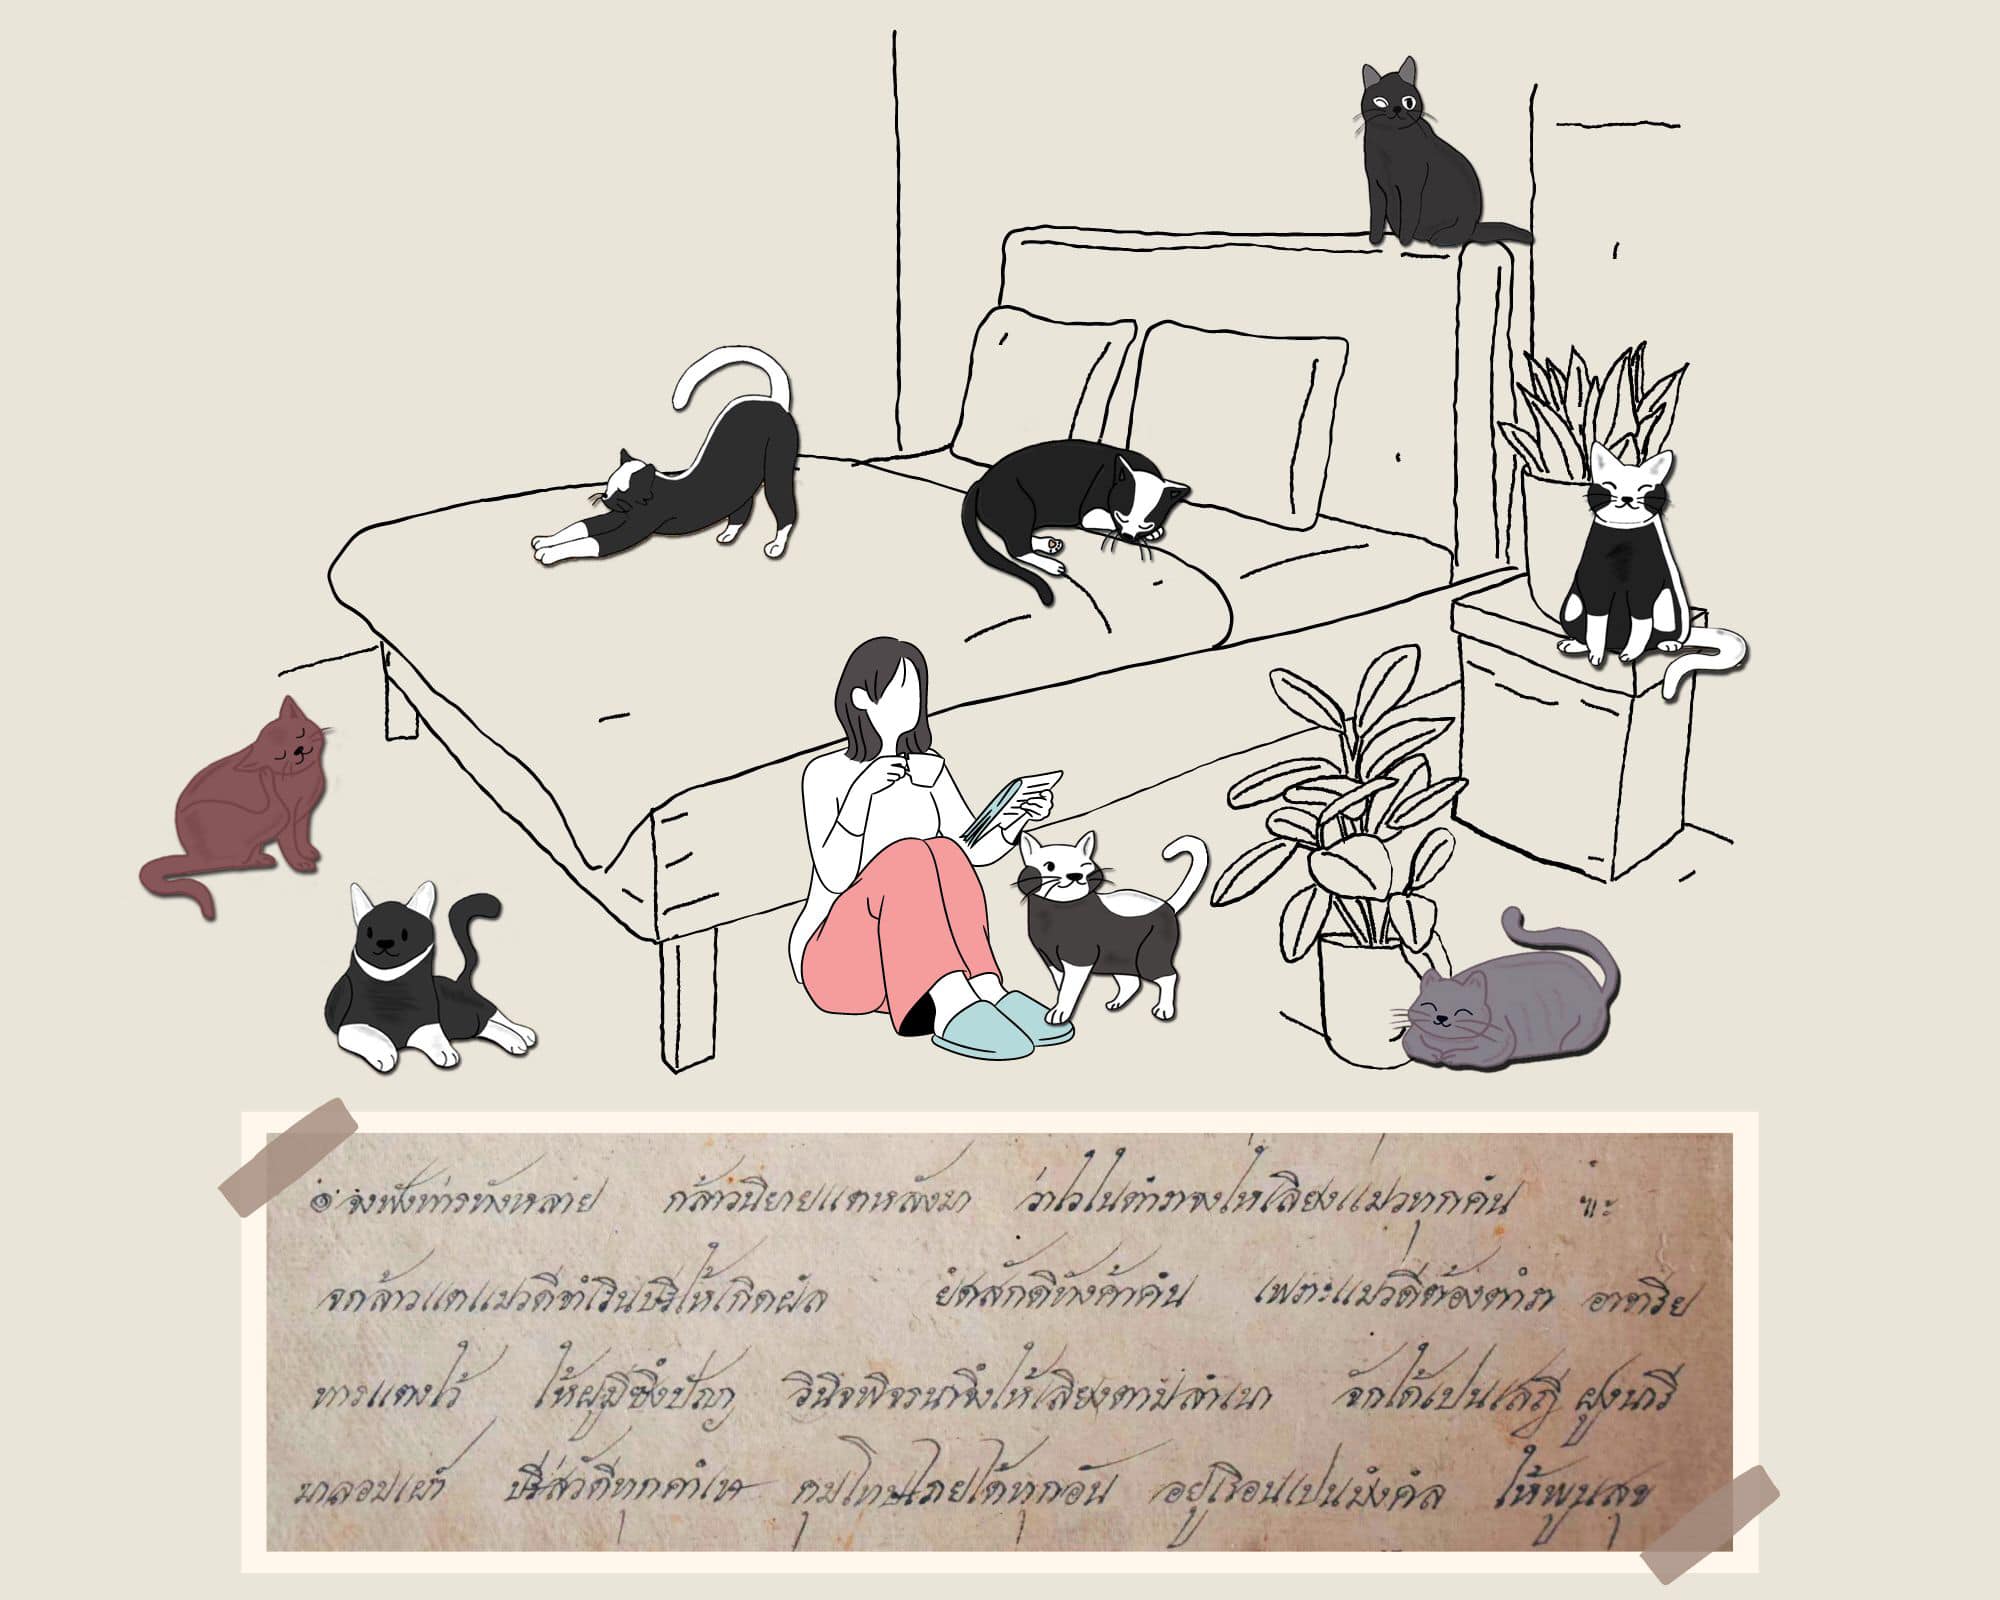 ๏ จงฟังทารทังหลาย กล้าวนิยายแตหลังมา ว่าไวไนตำภาจงไห้เลียงแมวทุกคัน ฯะ
จกล้าวแตแมวดีจำเรินษรีไห้เกิดผัล ยัศสักดีทังค้าคัน เพราะแมวดีต้องตำภา อาทาริย
ทารแตงไว้ ไห้ผูมีซึงปัญา วินิจพิจรนาจึงไห้เลียงตามสำเนา จักได้เปนเสฏี ฝูงนารี
มาลอบเผ้า ษรีสวัดีทุกคำเห คุมโทษไภยได้ทุกอัน อยู่เรือนเปนมังคัล ไห้พูนสุข